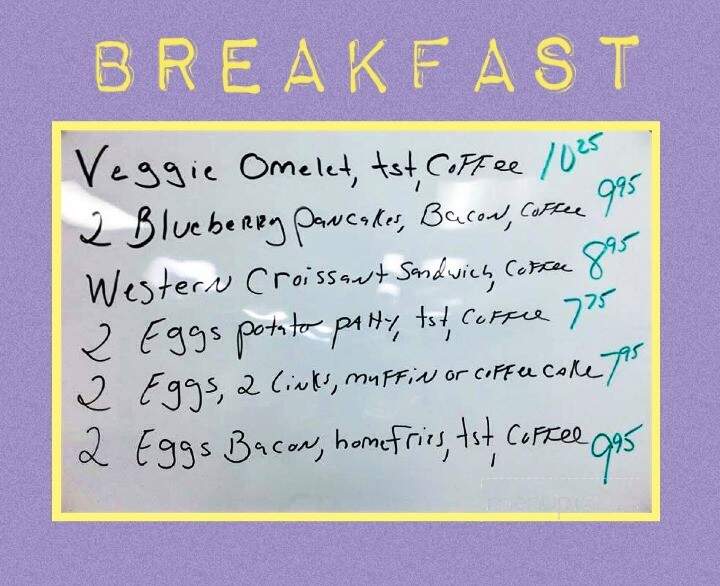 BREAKFAST
Veggie Omelet, tst, Coffee 10 25
2 Blueberry pancakes, Bacon, Coffee 9 95
Western Croissant Sandwich, Coffee 8 95
2 Eggs potato patty, tst, Coffee 7 75
2 Eggs, 2 links, muffin or coffee cake 7 95
2 Eggs Bacon, homefries, tst, Coffee 9 95